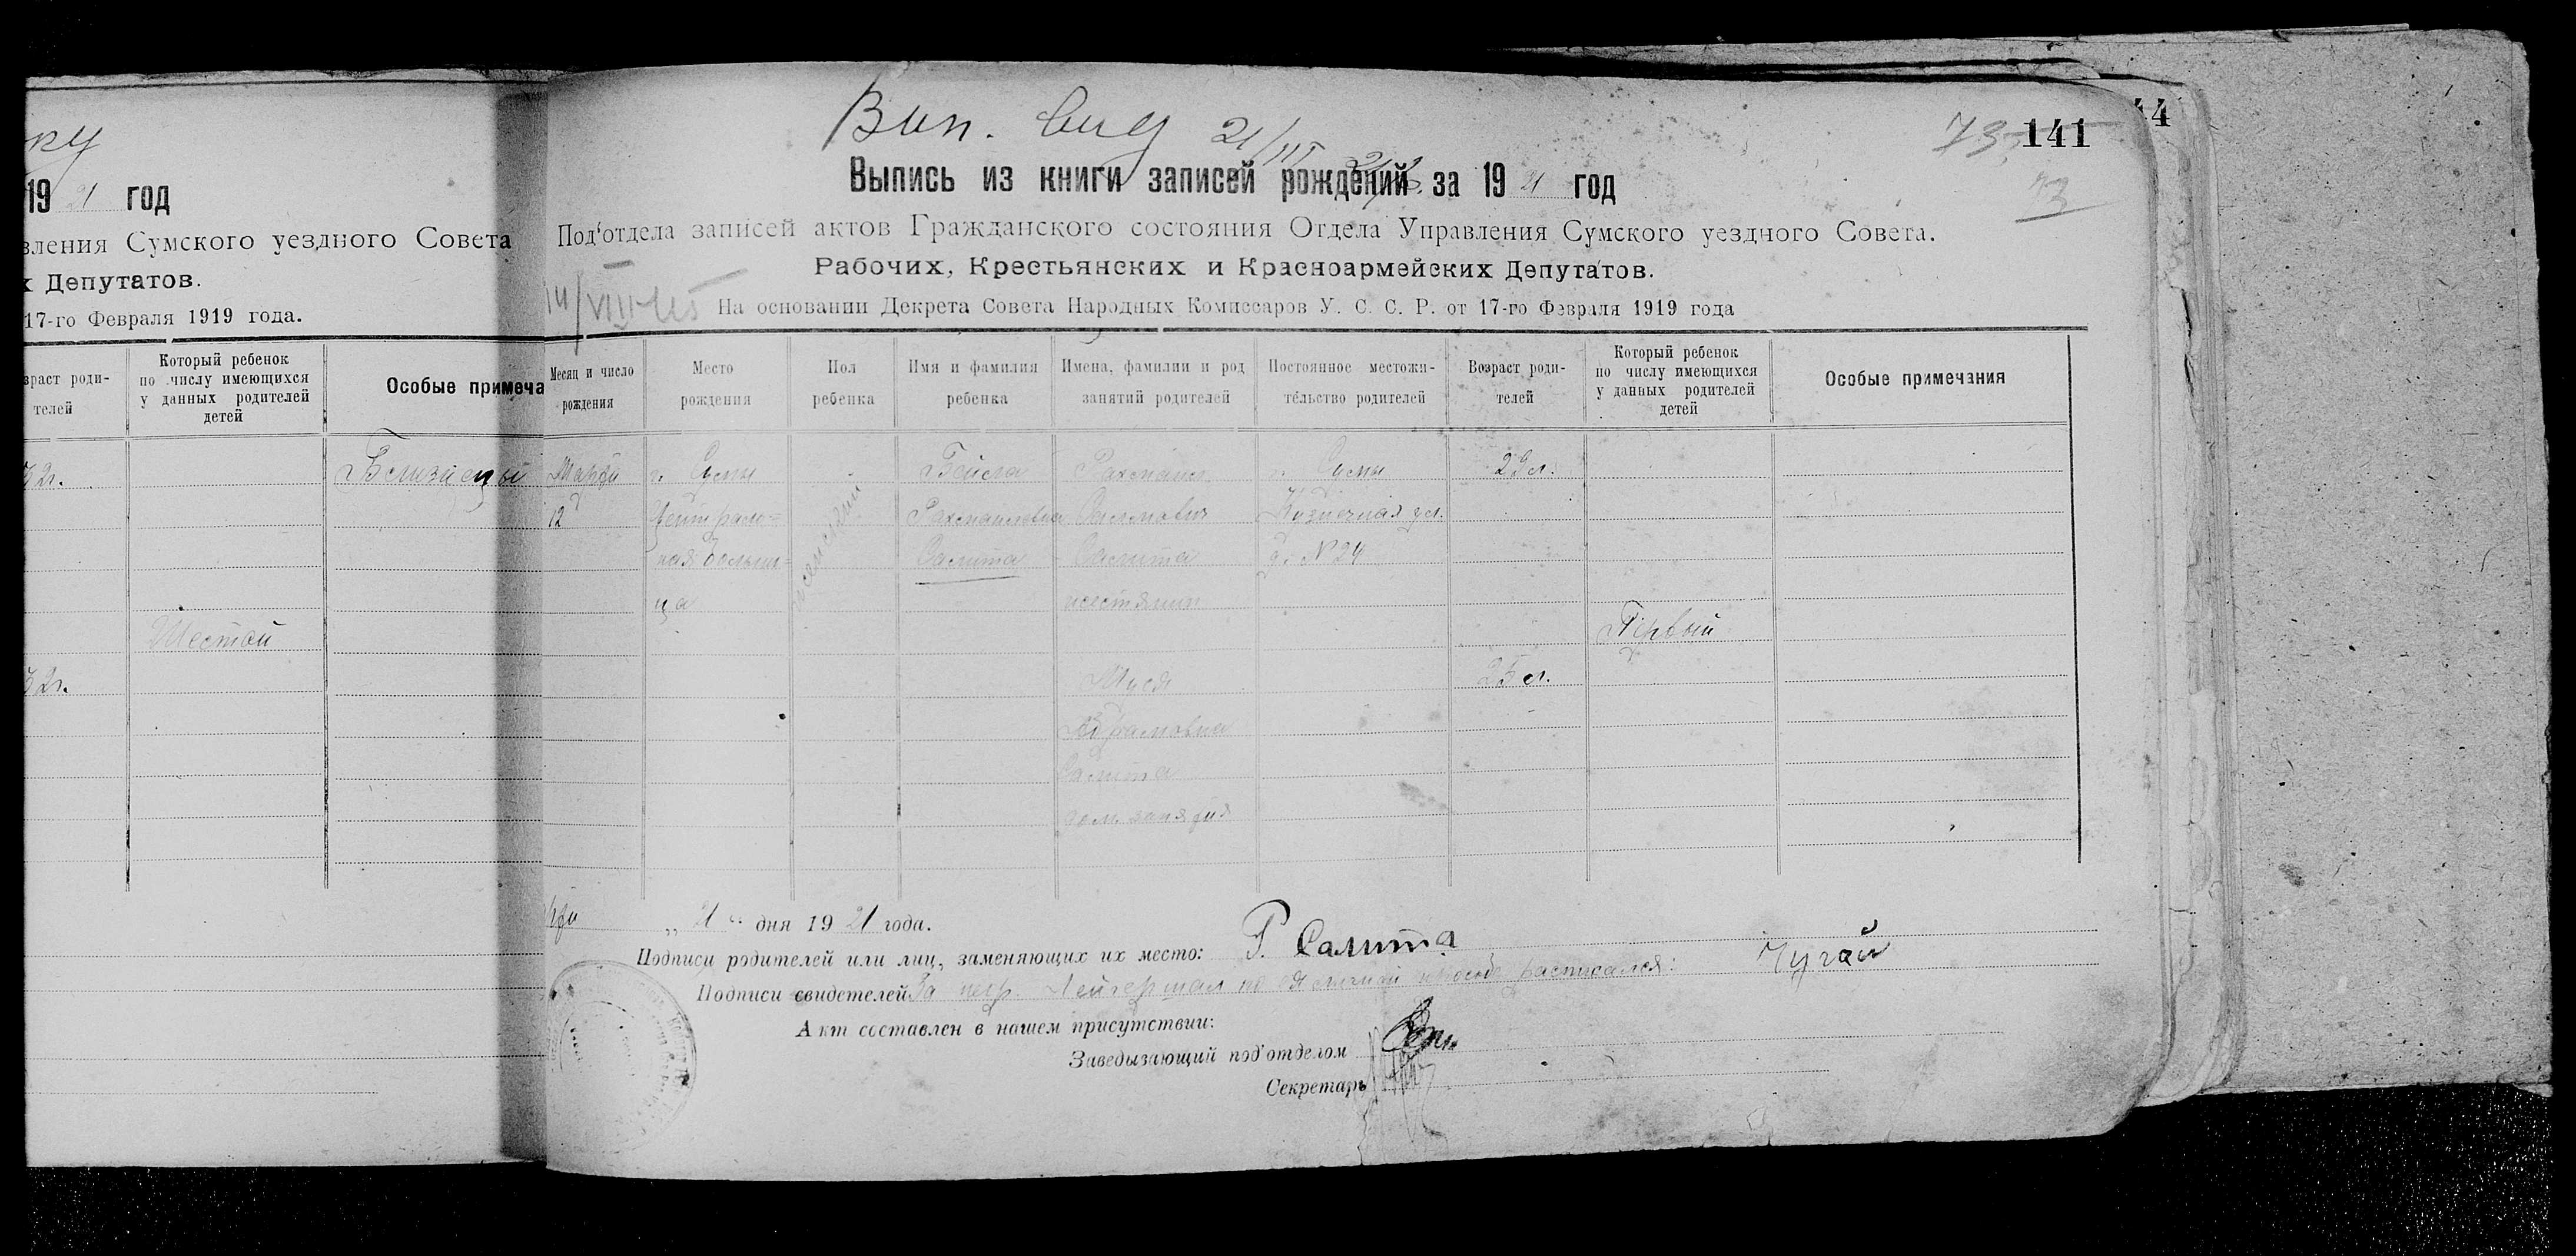 ку
19 21 год
вления Сумского уездного Совета
х Депутатов.
17-го Февраля 1919 года.
зраст роди-
телей
Который ребенок
по числу имеющихся
у данных родителей
детей
Особые примеча
32г.
Близнецы
Шестой
32г.
Вып. выд 21/III 21г.
73
141
44
Выпись из книги записей рождений за 19 21 год
73
Под'отдела записей актов Гражданского состояния Отдела Управления Сумского уездного Совета.
Рабочих, Крестьянских и Красноармейских Депутатов.
14/VIII-45
На основании Декрета Совета Народных Комиссаров У. С. С. Р. от 17-го Февраля 1919 года
Месяц и число
рождения
Место
рождения
Пол
ребенка
Имя и фамилия
ребенка
Имена, фамилии и род
занятий родителей
Постоянное местожи-
тельство родителей
Возраст роди-
телей
Который ребенок
по числу имеющихся
у данных родителей
детей
Особые примечания
Марта
12
г. Сумы
Централь-
ная больни-
ца
женский
Бейла
Рахмаиловна
Салита
Рахмаил
Салита
г. Сумы
Кузнечная ул.
д. № 24
29 л.
Первый
Муся
Абрамовна
Салита
дом. занятия
25 л.
„ 21 “ дня 19 21 года.
Подписи родителей или лиц, заменяющих их место: Р. Салита
Подписи свидетелей За негр. по его личной просьбе расписался: Чугай
Акт составлен в нашем присутствии:
Заведывающий под'отделом
Секретарь